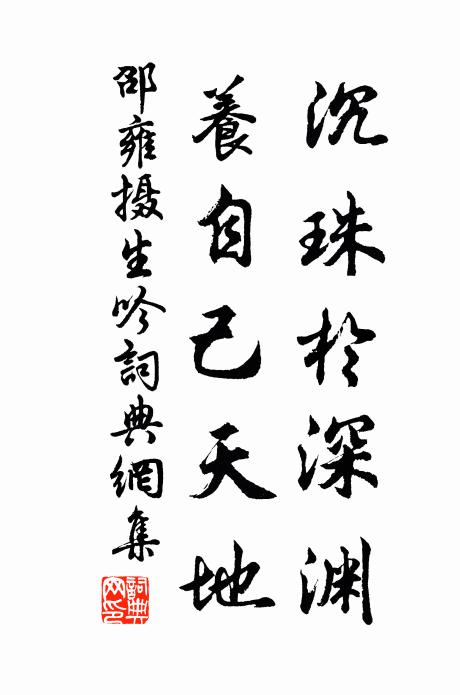 沉珠於深渊
養自己天地
邵雍摄生吟詞典網集
詞典网印